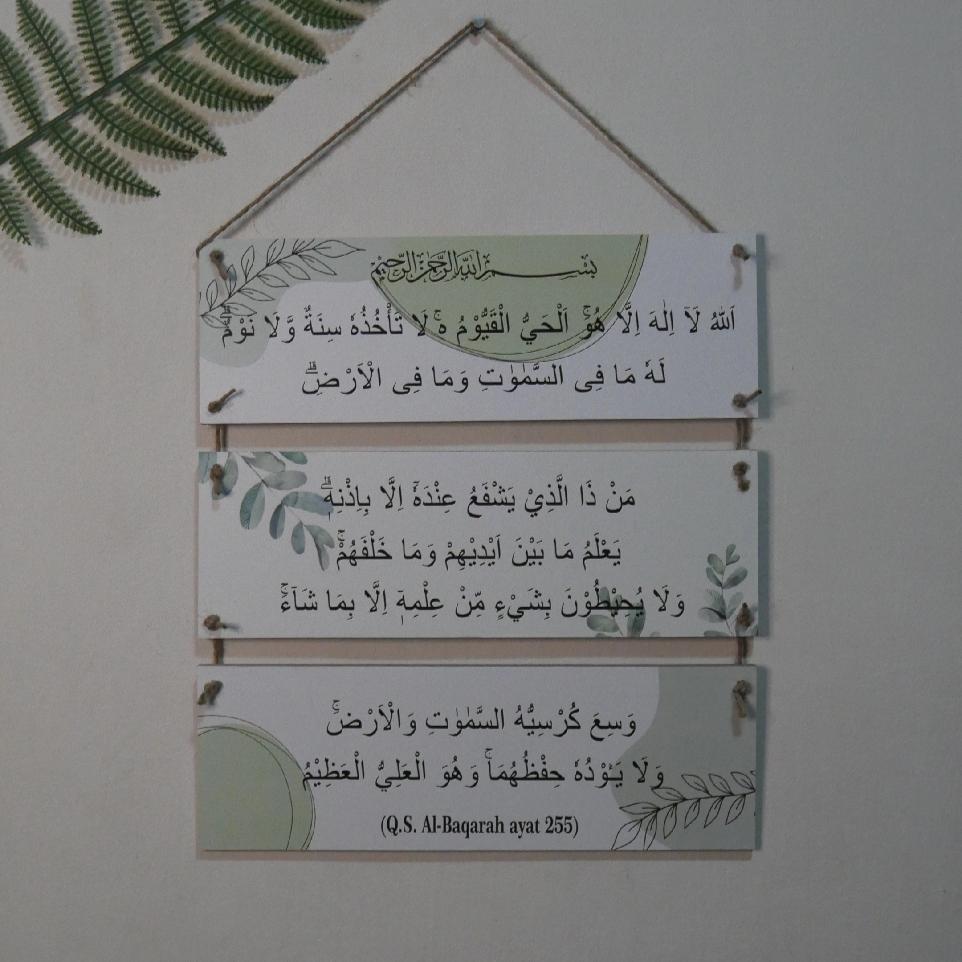 بسم الله الرحمن الرحيم
اَللّٰهُ لَآ اِلٰهَ اِلَّا هُوَۚ اَلْحَيُّ الْقَيُّوْمُ ەۚ لَا تَأْخُذُهٗ سِنَةٌ وَّلَا نَوْمٌۗ
لَهٗ مَا فِى السَّمٰوٰتِ وَمَا فِى الْاَرْضِۗ
مَنْ ذَا الَّذِيْ يَشْفَعُ عِنْدَهٗٓ اِلَّا بِاِذْنِهٖۗ
يَعْلَمُ مَا بَيْنَ اَيْدِيْهِمْ وَمَا خَلْفَهُمْۚ
وَلَا يُحِيْطُوْنَ بِشَيْءٍ مِّنْ عِلْمِهٖٓ اِلَّا بِمَا شَاۤءَۚ
وَسِعَ كُرْسِيُّهُ السَّمٰوٰتِ وَالْاَرْضَۚ
وَلَا يَـُٔوْدُهٗ حِفْظُهُمَاۚ وَهُوَ الْعَلِيُّ الْعَظِيْمُ
(Q.S. Al-Baqarah ayat 255)